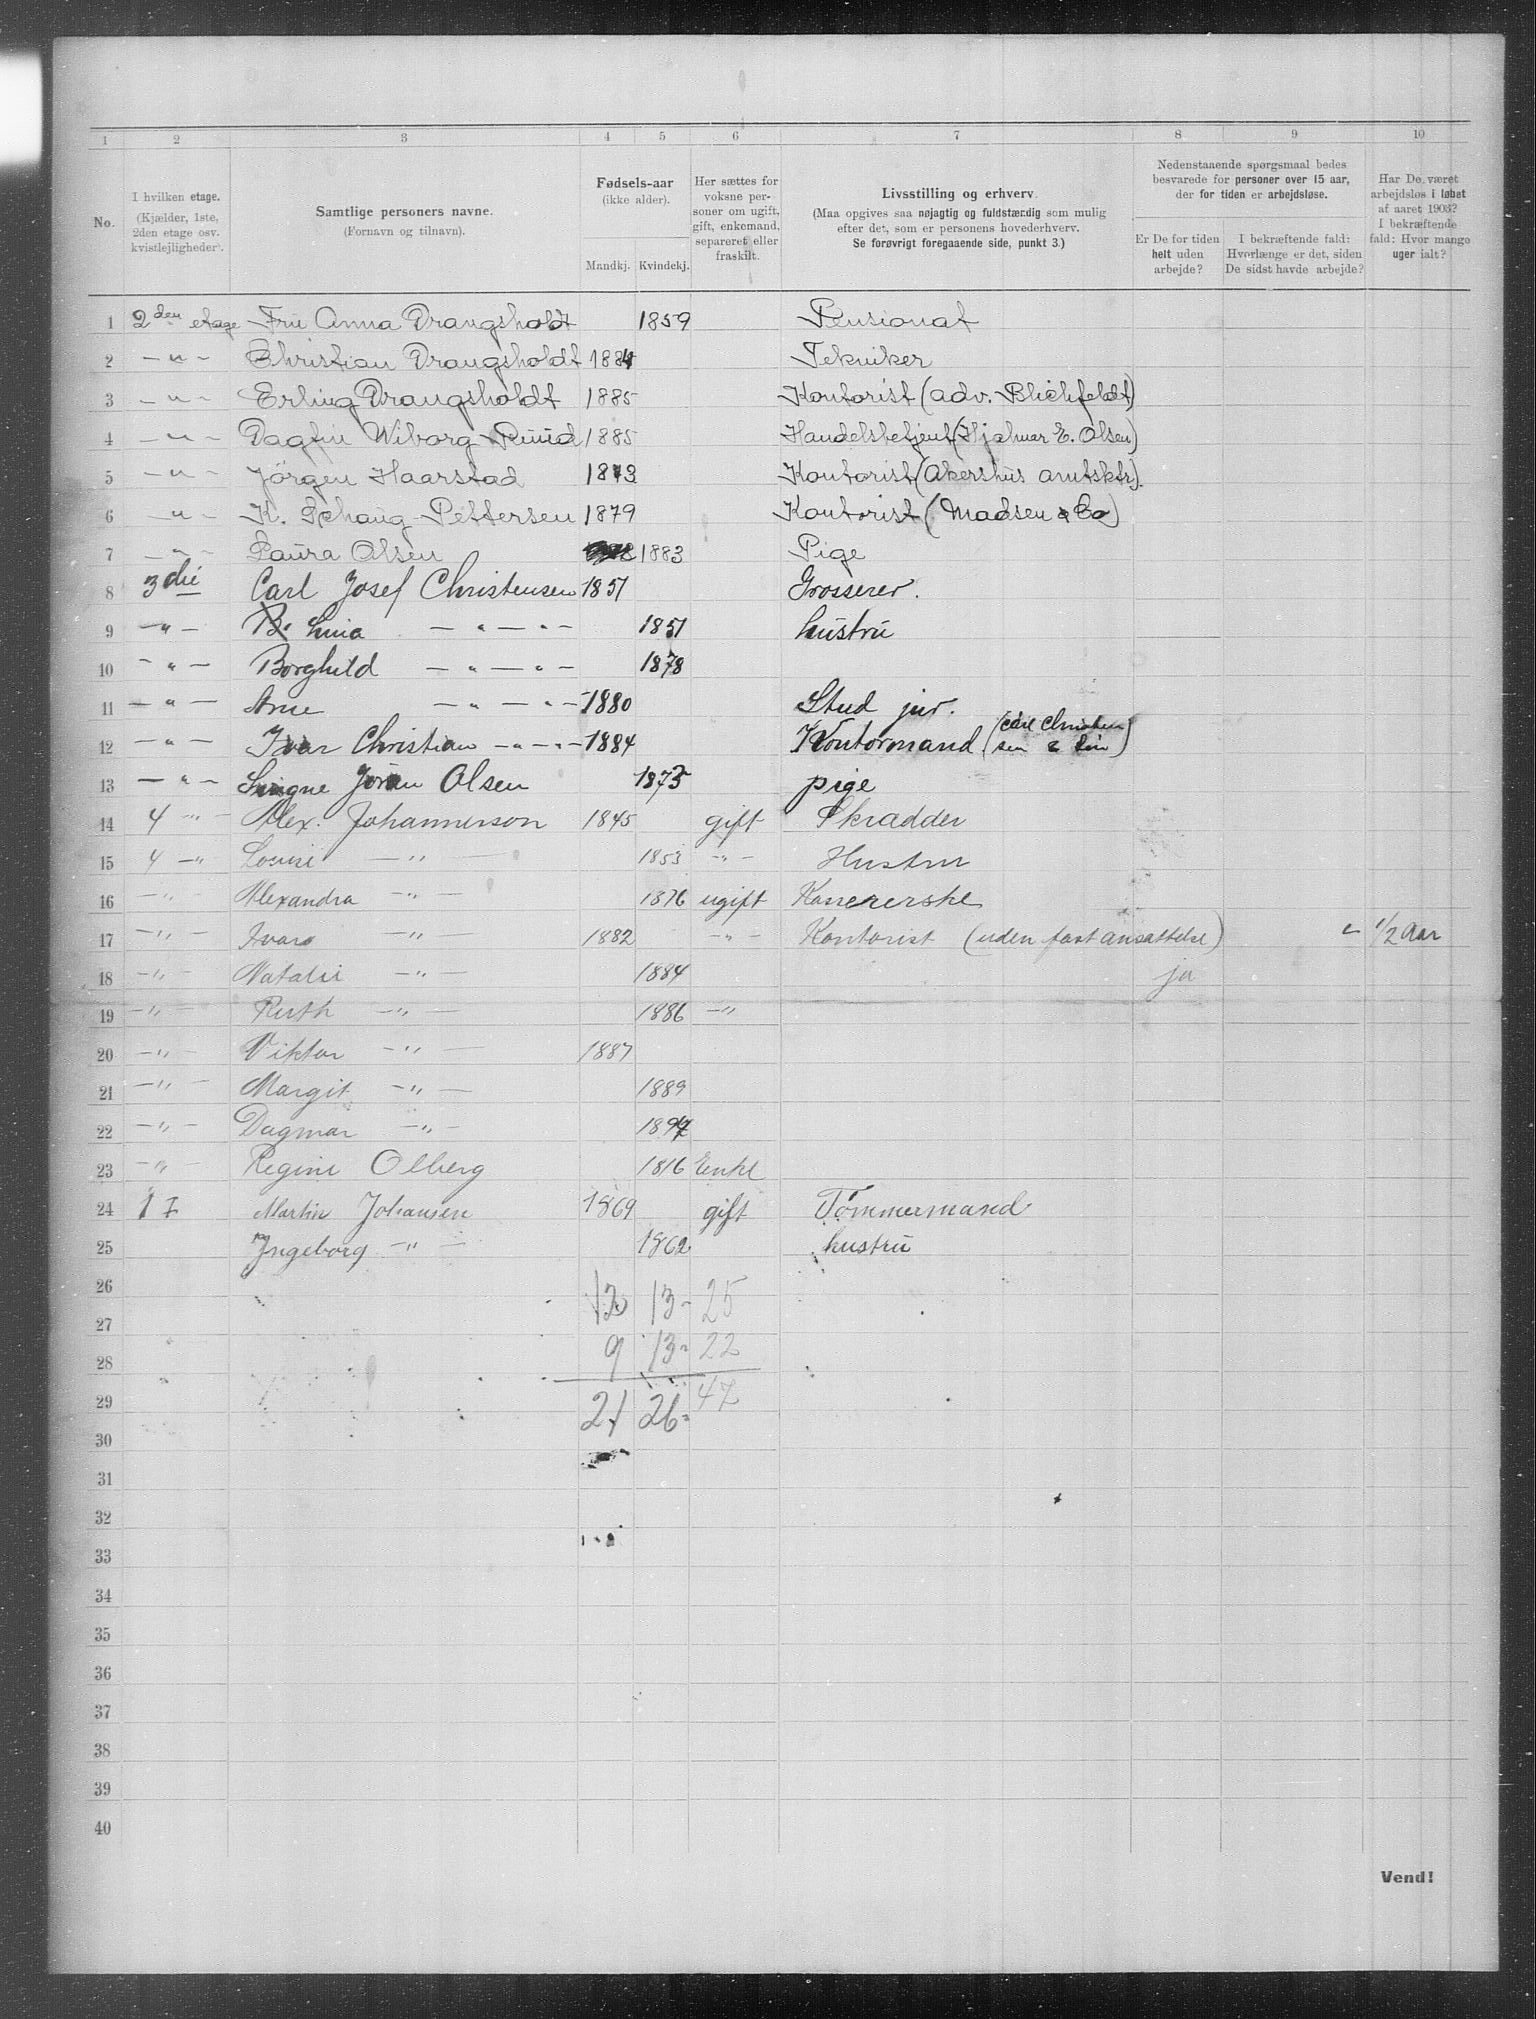 1 2 3 4 5 6 7 8 9 10
No.
I hvilken etage.
(Kjælder, 1ste, 2den etage osv. kvistlejligheder).
Samtlige personers navne.
(Fornavn og tilnavn).
Fødsels-aar
(ikke alder).
Mandkj. Kvindekj.
Her sættes for voksne personer om ugift, gift, enkemand, separeret eller fraskilt.
Livsstilling og erhverv.
(Maa opgives saa nøjagtig og fuldstændig som mulig
efter det, som er personens hovederhverv.
Se forøvrigt foregaaende side, punkt 3.)
Nedenstaaende spørgsmaal bedes
besvarede for personer over 15 aar,
der for tiden er arbejdsløse.
Er De for tiden helt uden arbejde?
I bekræftende fald: Hvorlænge er det, siden De sidst havde arbejde?
Har De været arbejdsløs i løbet af aaret 1903? I bekræftende fald: Hvor mange uger ialt?
1 2den etage Fru Anna Drangsholdt 1859 Pensionat
2 — " — Christian Drangsholdt 1884 Tekniker
3 — " — Erling Drangsholdt 1885 Kontorist (adv. Blichfeldt)
4 — " — Dagfin Wiborg Ruud 1885 Handelsbetjent (Hjalmar E. Olsen)
5 — " — Jörgen Haarstad 1873 Kontorist (Akershus amtsktr).
6 — " — K. Schaug-Pettersen 1879 Kontorist (Madsen & Co)
7 — " — Laura Olsen 1883 Pige
8 3die Carl Josef Christensen 1851 Grosserer.
9 — " — Lina — " — " — 1851 hustru
10 — " — Borghild — " — " — 1878
11 — " — Arne — " — " — 1880 Stud jur.
12 — " — Ivar Christian — " — " — 1884 Kontormand (Carl Christensen & Sön)
13 — " — Olsen 1873 pige
14 4 — " — Alex. Johannerson 1845 gift Skradder
15 4 — " Louise — " — 1853 — " — Hustru
16 — " — Alexandra — " — 1876 ugift
17 — " — Ivar — " — 1882 — " — Kontorist (uden fast ansattelse) 1/2 Aar
18 — " — Natalie — " — 1884 ja
19 — " — Ruth — " — 1886 — "
20 — " — Viktor — " — 1887
21 — " — Margit — " — 1889
22 — " — Dagmar — " —
23 — " Regine Olberg 1816 Enke
24 1 I Martin Johansen 1869 gift Tömmermand
25 Ingeborg — " — 1862 hustru
26
12 13 - 25
27
9 13 - 22
28
29
21 26 - 47
30
31
32
33
34
35
36
37
38
39
40
Vend!